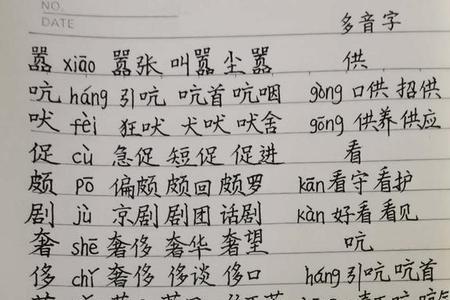 NO.
DATE
多音字
嚣 xiāo 嚣张 叫嚣 尘嚣 供
吭 háng 引吭 吭首 吭咽 gòng 口供 招供
吠 fèi 狂吠 犬吠 吠舍 gōng 供养 供应
促 cù 急促 短促 促进 看
颇 pō 偏颇 颇回 颇罗 kān 看守 看护
剧 jù 京剧 剧团 话剧 kàn 好看 看见
奢 shē 奢侈 奢华 奢望 吭
侈 chǐ 奢侈 侈谈 侈口 háng 引吭 吭首